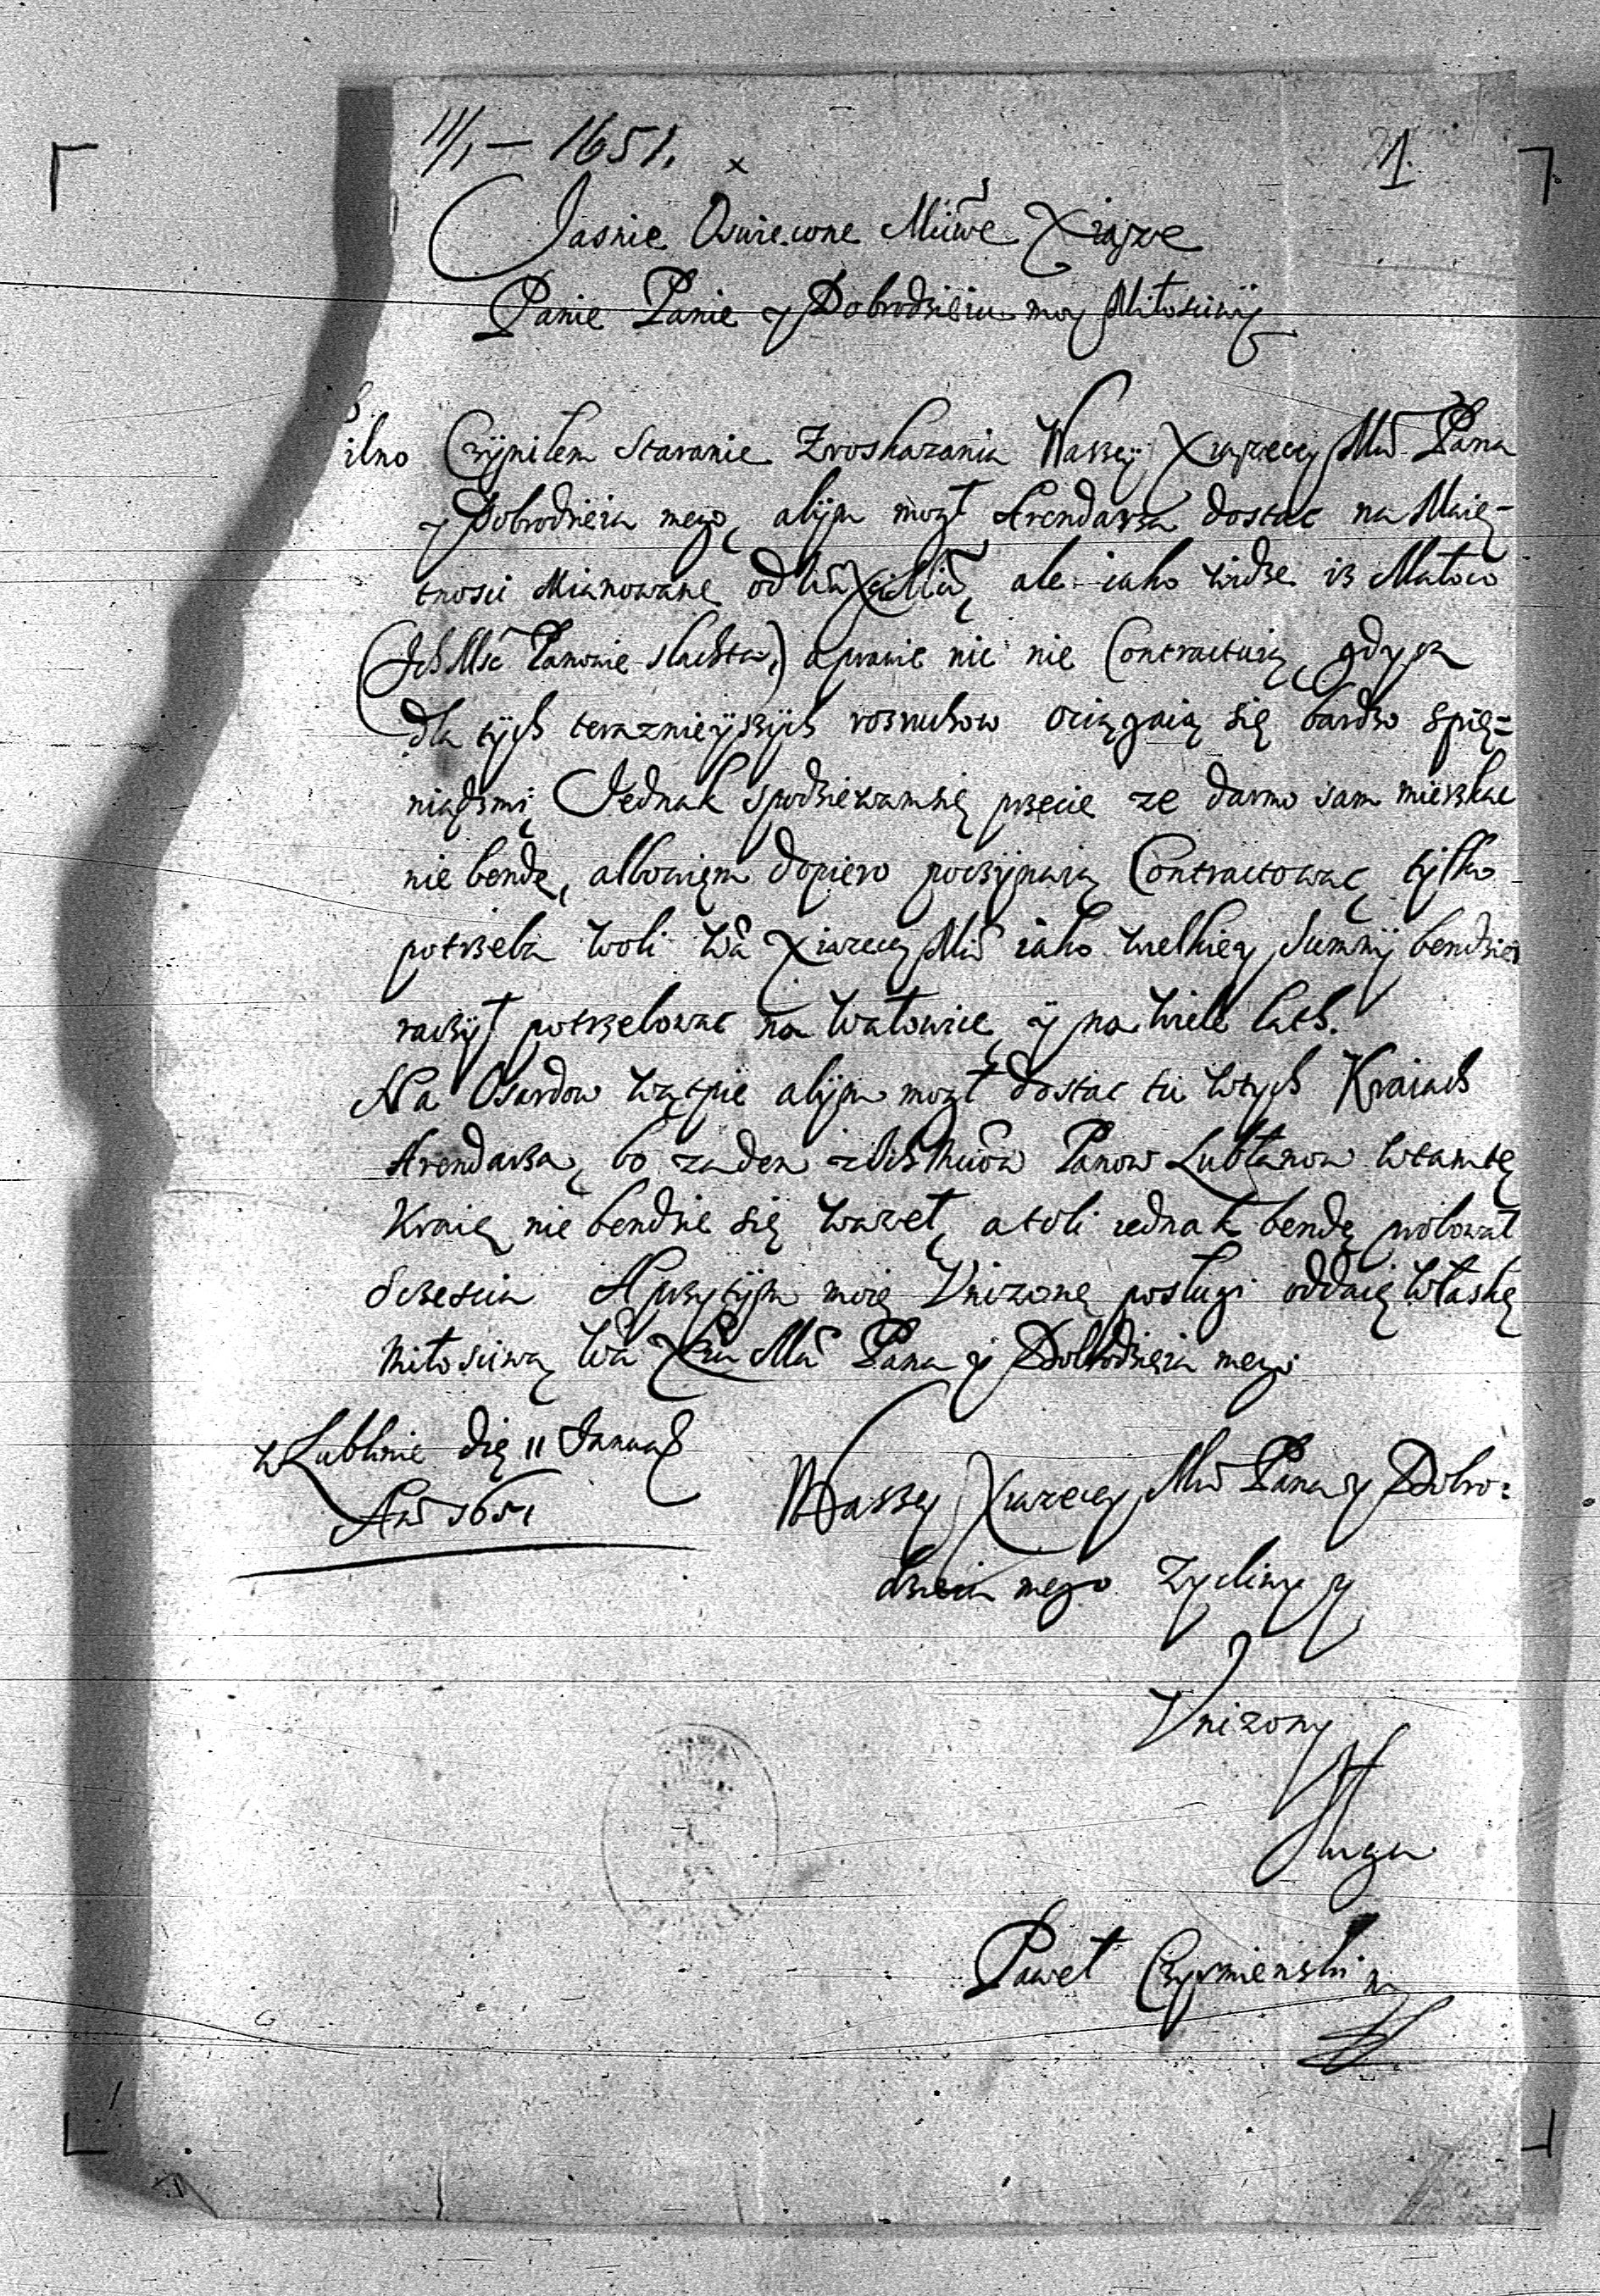 11/1 — 1651.
1.
Jasnie Oswiecone Miłwe Xiąze
Panie Panie y Dobrodzieiu moy Miłosciwy
ilno Czynilem staranie Zroskazania Waszey Xiązecey Msci Pana
y Dobrodzieia mego, abym mogł Arendarza dostac na Maię-
tnosci Mianowane od ale iako widze isz Małoco
(Ich Msc Panowie slachta,) a prawie nic nie Contractuią, gdysz
dla tych teraznieyszych rosruchow ociągaią się bardzo spię=
niądzmi, Jednak spodziewamsię przecie ze darmo sam mieszkac
nie bendę, albowięm dopiero poczynaią Contractowac, tylko
potrzeba woli Wa Xiązecey Msci iako wielkiey Summy bendziesz
raczył potrzebowac na Watowice, y na wiele lath.
Na Osardow wątpie abym mogł dostac tu wtych Kraiach
Arendarza, bo zaden z Panow Lublanow wtamte
Kraie nie bendzie się wazeł, atoli iednak bendę probował
Sczescia Aprzytym moię Vnizonę posługi oddaię właskę
miłosciwą Wa Pana y Dobrodzieia mego
w Lublinie die 11 Januar
Ao 1651
Waszey Xiązecey Msci Pana y Dobro=
dzieia mego zycliwy y
Vnizony
sługa
Paweł Czyrmienski